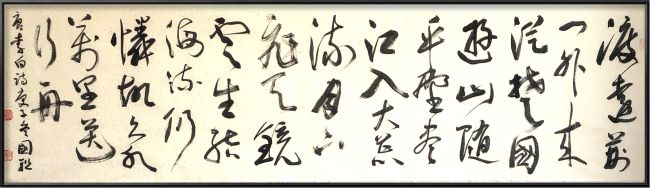 渡遠荊
門外来
從楚國
遊山随
平野尽
江入大荒
流月下
飛天鏡
雲生結
海樓仍
憐故鄉水
萬里送
行舟
唐李白詩庚子冬國